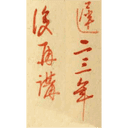 遲二三年
後再講